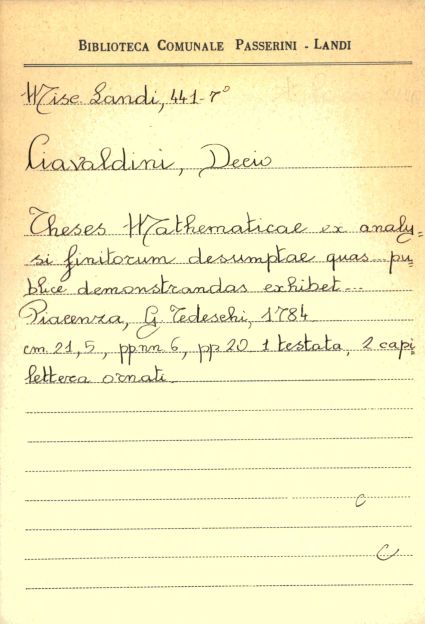 BIBLIOTECA COMUNALE PASSERINI - LANDI
Misc. Landi, 441-7°
Ciavaldini, Decio
Theses Mathematicae ex analy=
si finitorum desumptae quas... pu=
blice demonstrandas exhibet...
Piacenza, G. Tedeschi, 1784
cm. 21,5, pp.nn. 6, pp. 20. 1 testata, 2 capi=
lettera ornati.
C
C